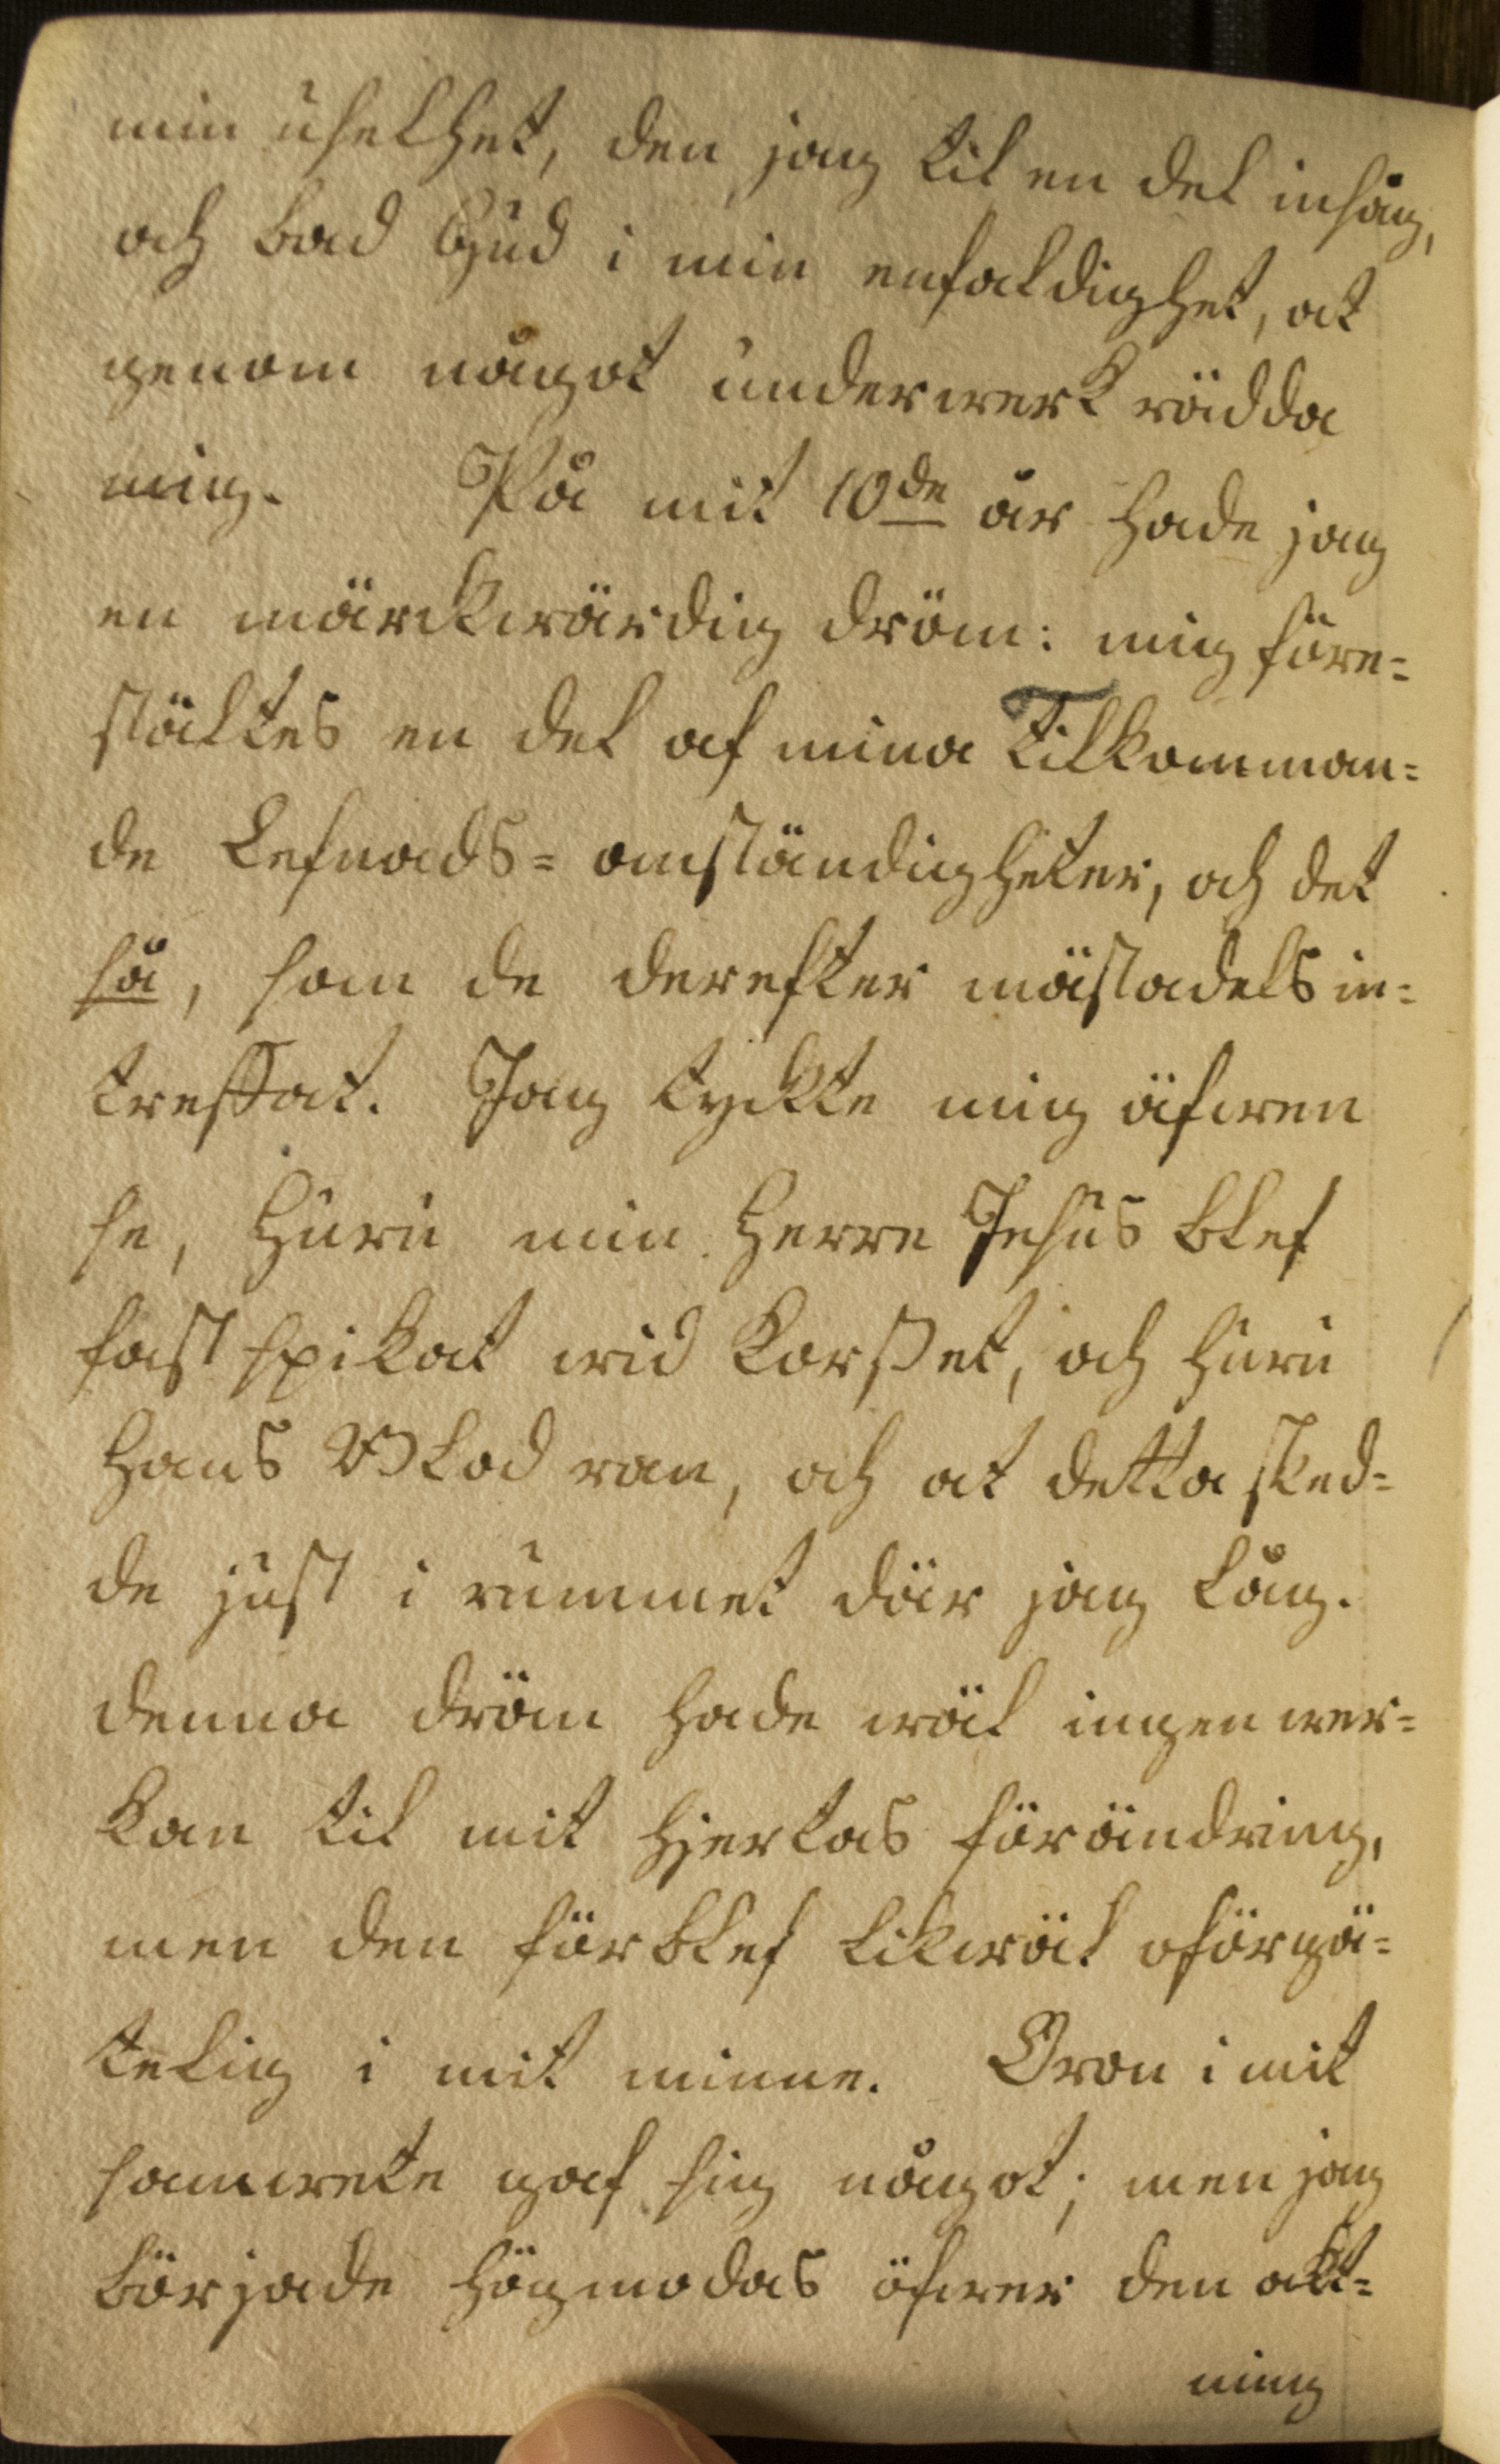 min uselhet, den jag til en del insåg,
och bad Gud i min enfaldighet, at
genom något underwerk rädda
mig. På mit 10de år hade jag
en märckwärdig dröm: mig före=
stältes en del af mina Tilkomman=
de Lefnads=omständigheter, och det
så, som de derefter mästadels in=
treffat. Jag tyckte mig äfwen
se, Huru min Herre Jesus blef
fast spikat wid Korßet, och huru
Hans Blod ran, och at detta sked=
de just i rummet där jag låg.
denna dröm hade wäl ingen wer=
kan til mit hjertas förändring,
men den förblef likwäl oförgä=
telig i mit minne. Oron i mit
samwete gaf sig något; men jag
började högmodas öfwer den akt=
ning